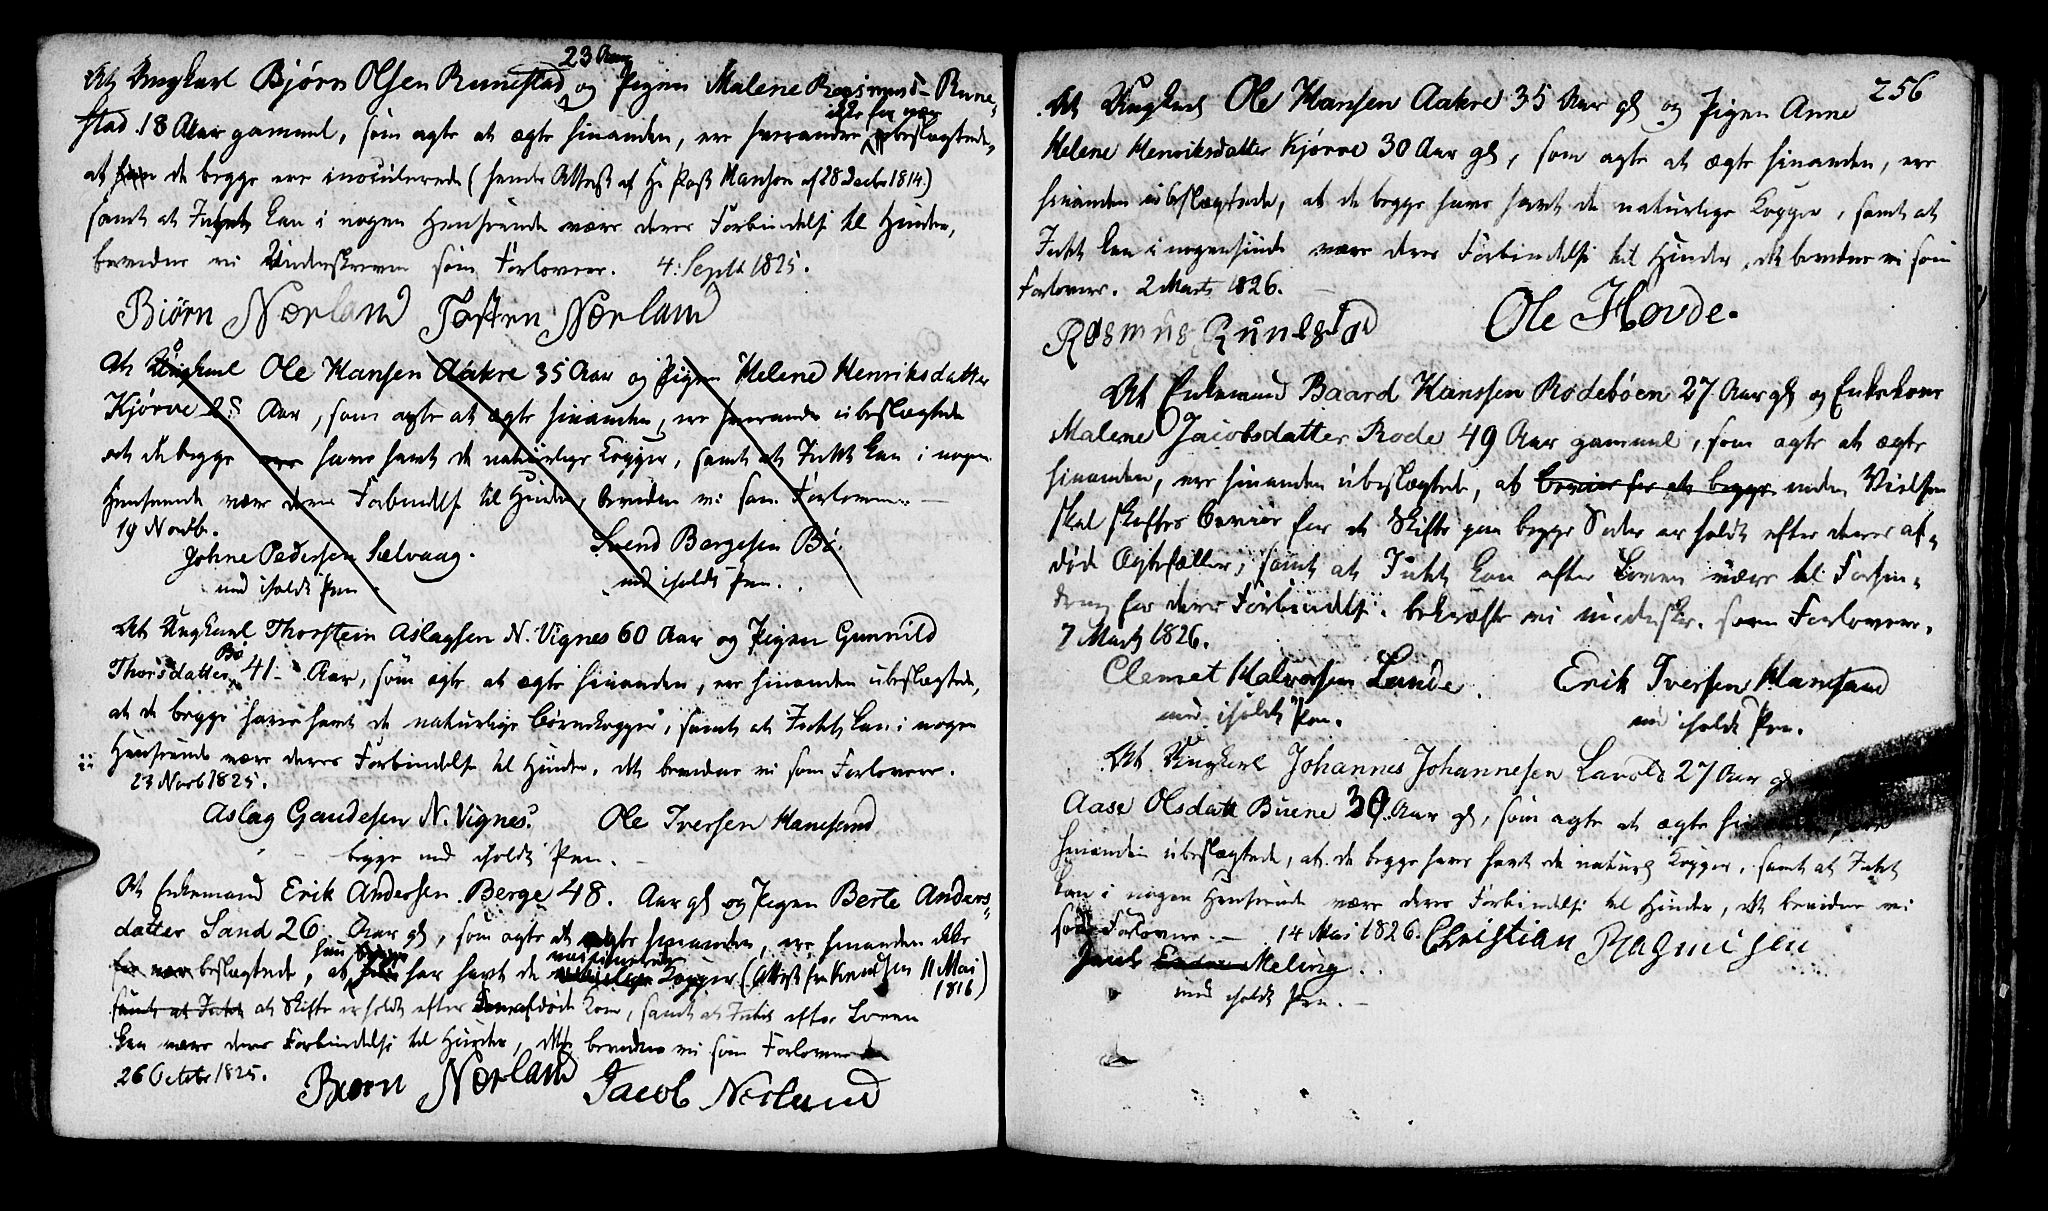 23 Aar
At Ungkarl Bjørn Olsen Runestad og Pigen Malene Rasmusd. Rune-
ikke for nær
stad 18 Aar gammel, som agte at ægte hinanden, ere hverandre ubeslægtede,
at han de begge ere inoculerede (hendes Attest af Hr Past Hansen af 28 Decbr 1814.)
samt at Intet kan i nogen Henseende være deres Forbindelse til Hinder,
bevidne vi Underskrevne som Forlovere. 4. Septb 1825.
Biørn Nærland Tosten Nærland
At Ungkarl Ole Hansen Aakre 35 Aar og Pigen Helene Henriksdatter
Kjørve 28 Aar, som agte at ægte hinanden, ere hverandre ubeslægtede
at de begge ere have havt de naturlige Kopper, samt at Intet kan i nogen
Henseende være deres Forbindelse til Hinder, bevidne vi som Forlovere.
19 Novb.
Johne Pedersen Sælvaag. Svend Børgesen Bø.
med iholdt Pen. med iholdt Pen.
At Ungkarl Thorstein Aslagsen N. Vignes 60 Aar og Pigen Gunnild
Bø
Thorsdatter 41 Aar, som agte at ægte hinanden, ere hinanden ubeslægtede,
at de begge have havt de naturlige Børnekopper, samt at Intet kan i nogen
Henseende være deres Forbindelse til Hinder, det bevidne vi som Forlovere.
23 Novb 1825.
Aslag Gaudesen N. Vignes. Ole Iversen Hanesand
begge med iholdt Pen.
At Enkemand Erik Andersen Berge 48 Aar gl og Pigen Berte Anders-
datter Sand 26 Aar gl, som agte at ægte hinanden, ere hinanden ikke
for nær beslægtede, at han har havt de naturlige Kopper (Attest fra Knudsen 11 Mai
1816)
samt at Intet at Skifte er holdt efter hans afdøde Kone, samt at Intet efter Loven
kan være deres Forbindelse til Hinder, dette bevidne vi som Forlovere
26 Octobr 1825.
Biørn Nærland Jacob Nærland
256
At Ungkarl Ole Hansen Aakre 35 Aar gl og Pigen Anne
Helene Henriksdatter Kjørve 30 Aar gl, som agte at ægte hinanden, ere
hinanden ubeslægtede, at de begge have havt de naturlige Kopper, samt at
Intet kan i nogensinde være deres Forbindelse til Hinder, det bevidne vi som
Forlovere. 2 Marts 1826.
Rasmus Runestad Ole Hovde.
At Enkemand Baard Hanssen Rødebøen 27 Aar gl og Enkekone
Malene Jacobsdatter Rode 49 Aar gammel, som agte at ægte
hinanden, ere hinanden ubeslægtede, at beviis for at begge inden Vielsen
skal skaffes beviis for at Skifte paa begge Sider er holdt efter deres af-
død Ægtefæller, samt at Intet kan efter Loven være til Forhin-
dring for deres Forbindelse. bekræfte vi undersk. som Forlovere.
7 Marts 1826.
Clemet Halvorsen Lunde. Erik Iversen Hanesand
med iholdt Pen. med iholdt Pen.
At Ungkarl Johannes Johannesen Lavold 27 Aar gl
Aase Olsdatt Buene 30 Aar gl, som agte at ægte
hinanden ubeslægtede, at de begge have havt de naturl Kopper, samt at Intet
kan i nogen Henseende være deres Forbindelse til Hinder, det bevidne vi
som Forlovere. 14 Mai 1826. Christian Rasmusen
Meling.
med iholdt Pen.